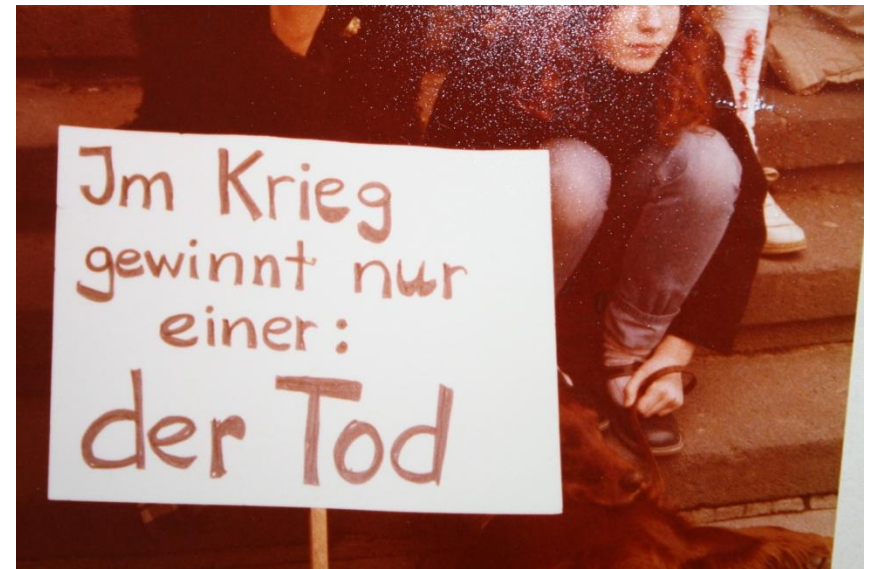 Im Krieg
gewinnt nur
einer:
der Tod